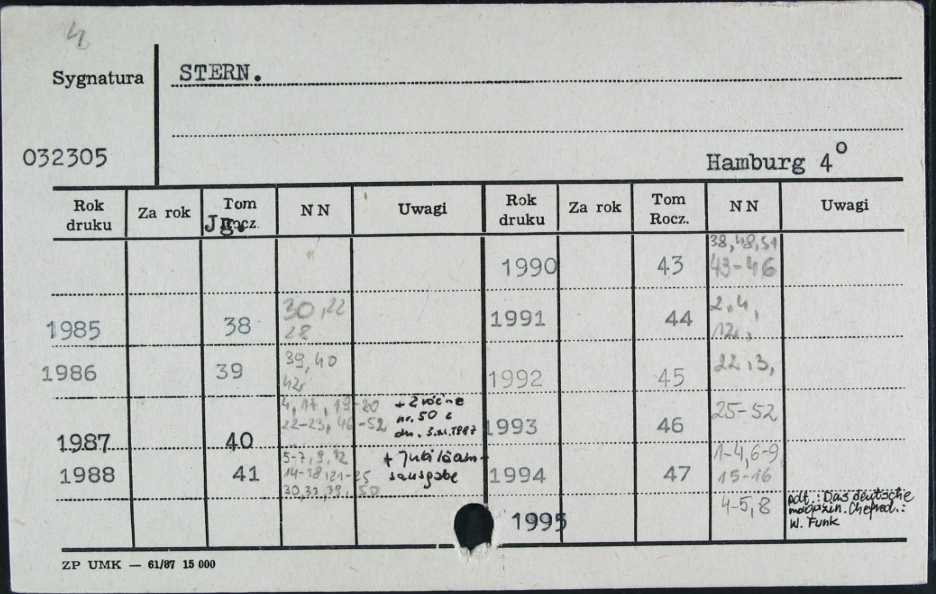 4
Sygnatura STERN.
032305
Hamburg 4°
Rok druku Za rok Tom Rocz. Jg. NN Uwagi Rok druku Za rok Tom Rocz. NN Uwagi
1990 43 38, 48, 51 43-46
1985 38 30, 22 28 1991 44 2, 4, 12,
1986 39 39, 40 42, 1992 45 22, 3,
1987 40 4, 17, 19-20 22-23, 46-52 + 2 różne nr. 50 z dn. 3.XII.1987 1993 46 25-52
1988 41 5-7, 9, 12 14-18, 21-25 30, 33, 39, 50 + Jubiläumsausgabe 1994 47 1-4, 6-9, 15-16
1995 4-5, 8 pdt.: Das deutsche magazin. Chefred.: W. Funk
ZP UMK — 61/87 15 000